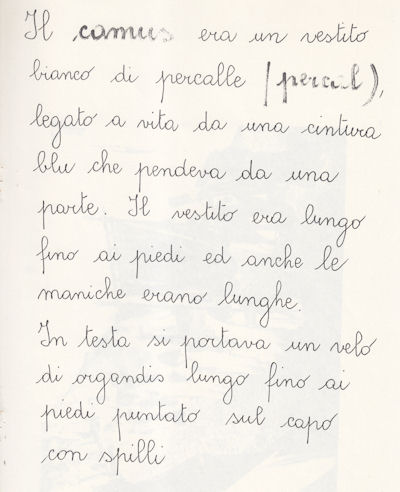 Il camus era un vestito
bianco di percalle (percal),
legato a vita da una cintura
blu che pendeva da una
parte. Il vestito era lungo
fino ai piedi ed anche le
maniche erano lunghe.
In testa si portava un velo
di organdis lungo fino ai
piedi puntato sul capo
con spilli